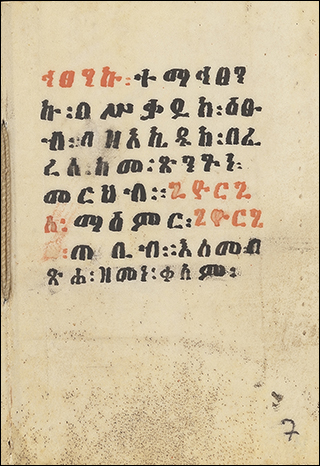 ኅፀንኩ፡ተማኅፀን
ኩ፡በሥቃዪከ፡ዕፁ
ብ፡ዘአኪዱከ፡በፈ
ረስ፡ከመ፡ጽንጉን፡
መርህብ፡፡ጊዮርጊ
ስ፡ማዕምር፡ጊዮርጊ
ስ፡ጠቢብ፡፡እስመብ
ጽሐ፡ዘመነ፡ቀለም፡
7